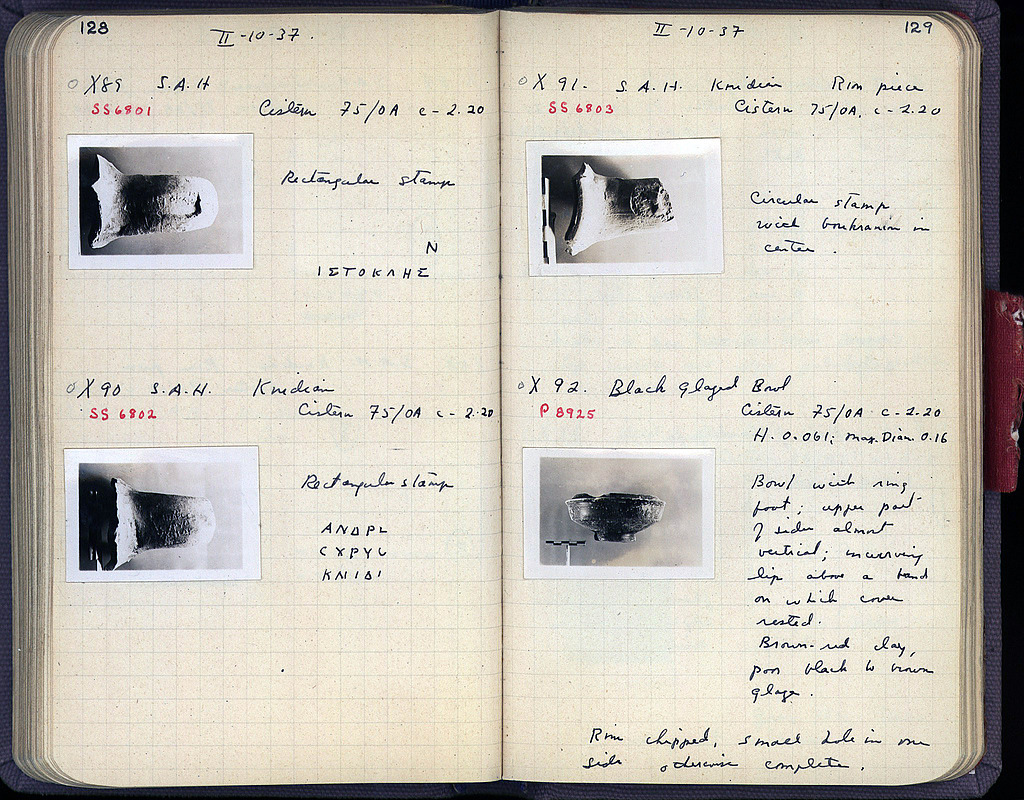 128
II-10-37.
X89 S.A.H
SS6801
Cistern 75/OA c-2.20
Rectangular stamp
N
ΙΣΤΟΚΛΗΣ
X90 S.A.H. Knidian
SS 6802
Cistern 75/OA c-2.20
Rectangular stamp
ΑΝΔΡL
CΧΡΥC
ΚΝΙΔΙ
II-10-37
129
X 91. S.A.H. Knidian Rim piece
SS 6803
Cistern 75/OA, c-2.20
Circular stamp
with boukranion in
center.
X 92. Black glazed Bowl
P 8925
Cistern 75/OA c-2.20
H. 0.061; max. Diam. 0.16
Bowl with ring
foot; upper part
of sides almost
vertical; incurving
lip above a band
on which cover
rested.
Brown-red clay,
poor black to brown
glaze.
Rim chipped, small hole in one
side otherwise complete.